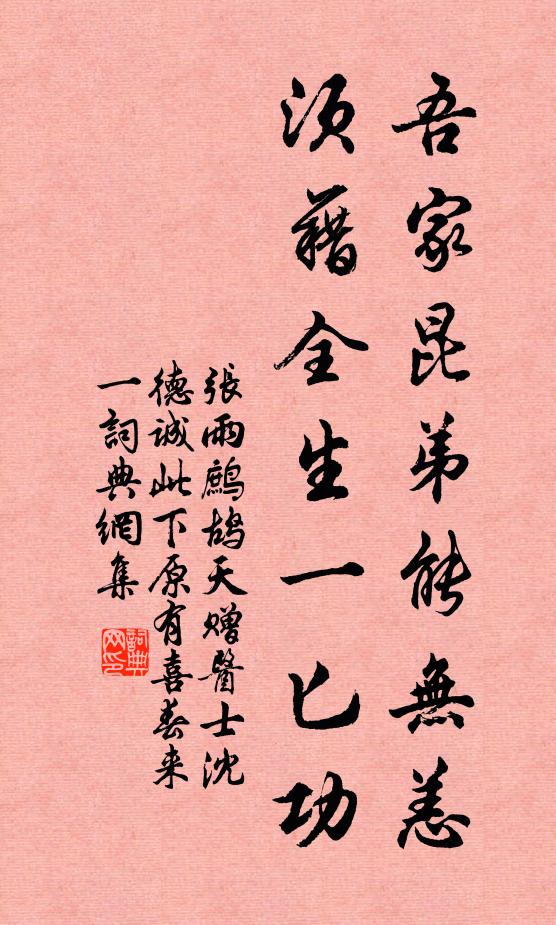 吾家昆弟能無恙
須藉全生一匕功
張雨鷓鴣天贈醫士沈
德誠此下原有喜春来
一詞典網集
詞典
网印